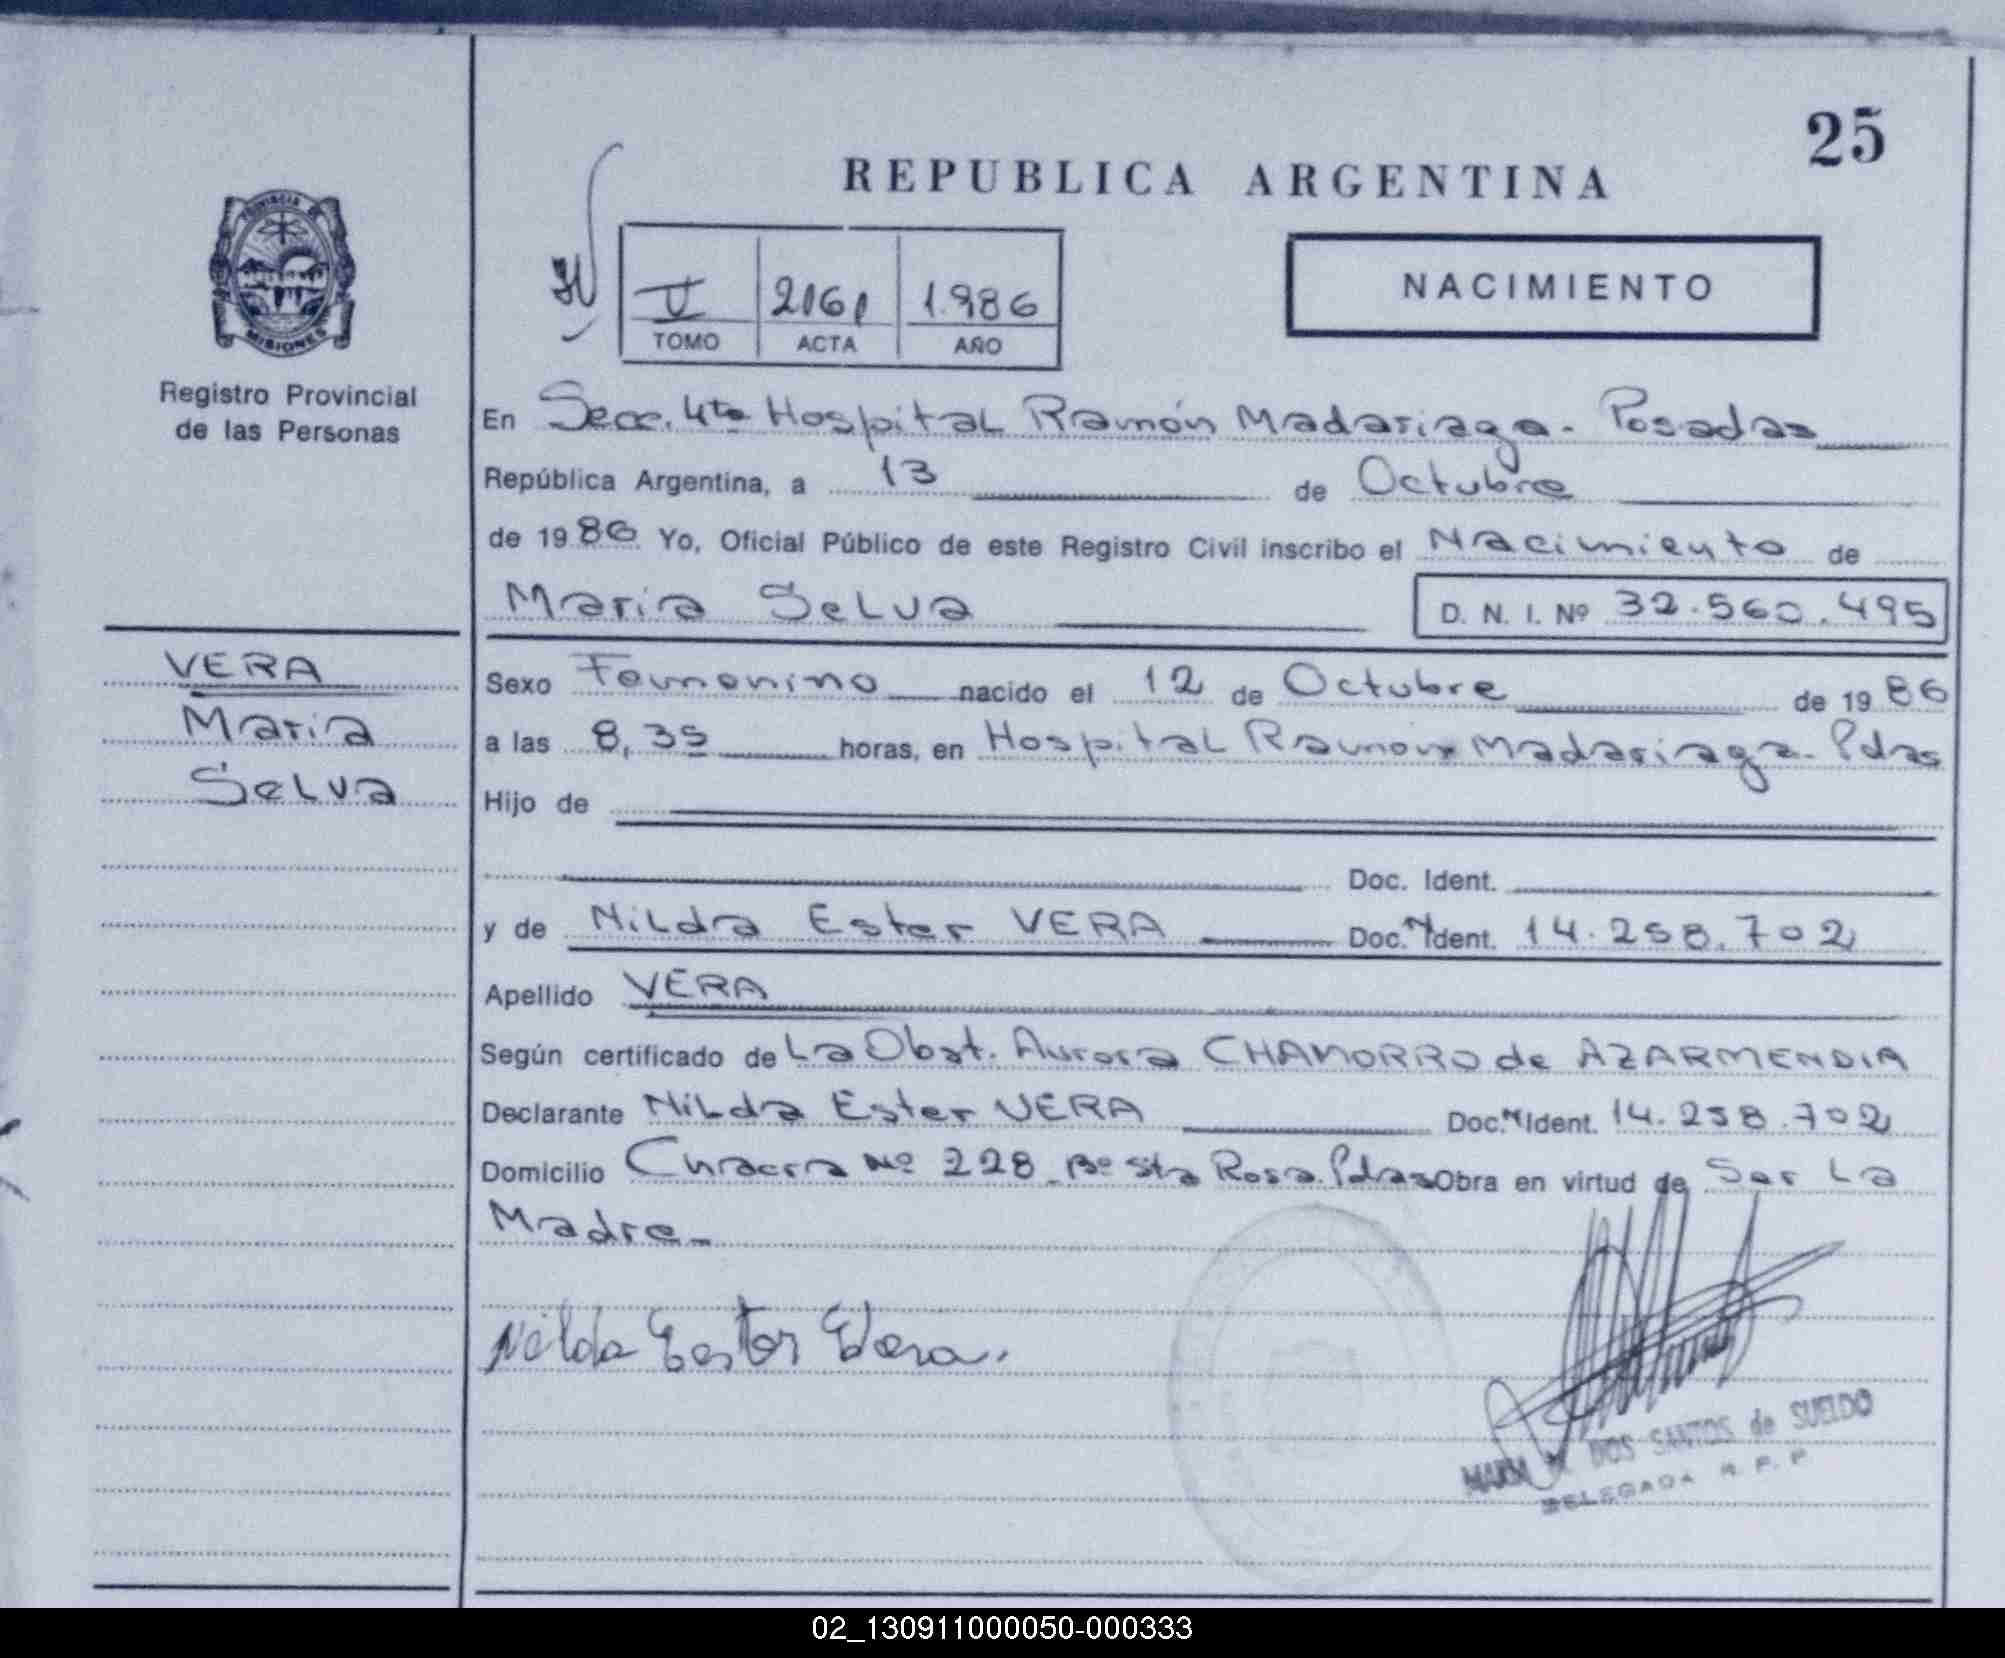 25
REPUBLICA ARGENTINA
PROVINCIA DE
MISIONES
Registro Provincial
de las Personas
V 2161 1.986
TOMO ACTA AÑO
NACIMIENTO
En Secc. 4ta Hospital Ramón Madariaga - Posadas
República Argentina, a 13 de Octubre
de 1986 Yo, Oficial Público de este Registro Civil inscribo el Nacimiento de
Maria Selva D. N. I. Nº 32.560.495
VERA
Maria
Selva
Sexo Femenino nacido el 12 de Octubre de 1986
a las 8,35 horas, en Hospital Ramon Madariaga - Pdas
Hijo de
Doc. Ident.
y de Nilda Ester VERA Doc. Ident. 14.258.702
Apellido VERA
Según certificado de La Obst. Aurora CHAMORRO de AZARMENDIA
Declarante Nilda Ester VERA Doc. Ident. 14.258.702
Domicilio Chacra Nº 228 - Bº Sta Rosa. Pdas Obra en virtud de Ser La
Madre -
Nilda Ester Vera.
DOS SANTOS de SUELDO
DELEGADA R. P. P.
02_130911000050-000333